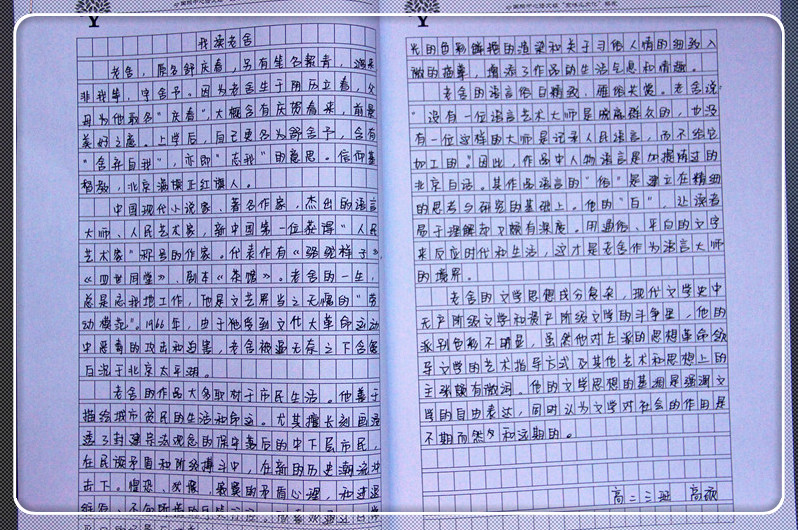 我读老舍
老舍，原名舒庆春，另有笔名絜青、鸿来
非我等，字舍予。因为老舍生于阴历立春，父
母为他取名"庆春"，大概含有庆贺春来、前景
美好之意。上学后，自己更名为舒舍予，含有
"舍弃自我"，亦即"忘我"的意思。信仰基
督教，北京满族正红旗人。
中国现代小说家、著名作家，杰出的语言
大师、人民艺术家，新中国第一位获得"人民
艺术家"称号的作家。代表作有《骆驼祥子》、
《四世同堂》，剧本《茶馆》。老舍的一生，
总是忘我地工作，他是文艺界当之无愧的"劳
动模范"。1966年，由于他受到文化大革命运动
中恶毒的攻击和迫害，老舍被逼无奈之下含冤
自沉于北京太平湖。
老舍的作品大多取材于市民生活。他善于
描绘城市贫民的生活和命运。尤其擅长刻画浸
透了封建宗法观念的保守落后的中下层市民，
在民族矛盾和阶级搏斗中，在新的历史潮流冲
击下。惶恐、犹豫、寂寞的矛盾心理，和进退
光的色彩鲜艳的渲染和关于习俗人情的细致入
微的描摹，增添了作品的生活气息和情趣。
老舍的语言俗白精致、雅俗共赏。老舍说：
"没有一位语言艺术大师是脱离群众的，也没
有一位这样的大师是记录人民语言，而不给它
加工的。"因此，作品中人物语言是加提炼过的
北京白话。其作品语言的"俗"是建立在精细
的思考与研究的基础上。他的"白"，让读者
易于理解却又颇有深度。用通俗、平白的文字
来反应时代和生活，这才是老舍作为语言大师
的境界。
老舍的文学思想成分复杂，现代文学史中
无产阶级文学和资产阶级文学的斗争里，他的
派别色彩不明显，虽然他对左派的思想革命领
导文学的艺术指导方式及其他艺术和思想上的
主张颇有微词。他的文学思想的基调是强调文
学的自由表达，同时认为文学对社会的作用是
不期而然的和远期的。
高二三班